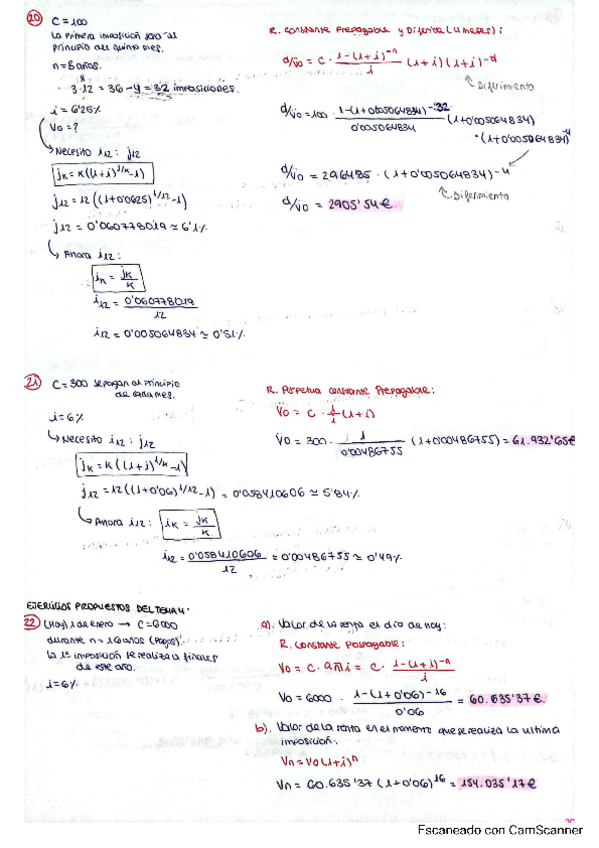 20 C = 100
La primera imposición 100 al
principio del quinto mes.
n = 8 años.
· 3·12 = 36 - 4 = 32 imposiciones.
i = 6'25%
V₀ = ?
↳ Necesito i₁₂ : j₁₂
jₖ = k((1+i)^1/k - 1)
j₁₂ = 12((1+0'0625)^1/12 - 1)
j₁₂ = 0'060778019 ≃ 6'1%
↳ Ahora i₁₂ :
iₖ = jₖ/k
i₁₂ = 0'060778019/12
i₁₂ = 0'005064834 ≃ 0'51%
R. Constante Prepagable y Diferida (4 meses) :
d/V̈₀ = C · 1-(1+i)^-n/i (1+i)(1+i)^-d
↖ Diferimiento
d/V̈₀ = 100 · 1-(1+0'005064834)^-32/0'005064834 (1+0'005064834)
· (1+0'005064834)^-4
d/V̈₀ = 2964'85 · (1+0'005064834)^-4
↖ Diferimiento
d/V̈₀ = 2905'54€.
21 C = 300 se pagan al principio
de cada mes.
i = 6%
↳ Necesito i₁₂ : j₁₂
jₖ = k((1+i)^1/k - 1)
j₁₂ = 12((1+0'06)^1/12 - 1) = 0'058410606 ≃ 5'84%
↳ Ahora i₁₂ : iₖ = jₖ/k
i₁₂ = 0'058410606/12 = 0'00486755 ≃ 0'49%
R. Perpetua constante Prepagable :
V̈₀ = C · 1/i (1+i)
V̈₀ = 300 · 1/0'00486755 (1+0'00486755) = 61.932'65€
EJERCICIOS PROPUESTOS DEL TEMA 4.
22 (Hoy) 1 de enero → C = 6000
durante n = 16 años (Pagos).
La 1ª imposición se realiza a finales
de este año.
i = 6%
a). Valor de la renta el día de hoy :
R. Constante Pospagable :
V₀ = C · an̄|i = C · 1-(1+i)^-n/i
V₀ = 6000 · 1-(1+0'06)^-16/0'06 = 60.635'37€.
b). Valor de la renta en el momento que se realiza la última
imposición :
Vn = V₀(1+i)^n
Vn = 60.635'37 (1+0'06)^16 = 154.035'17€
Escaneado con CamScanner